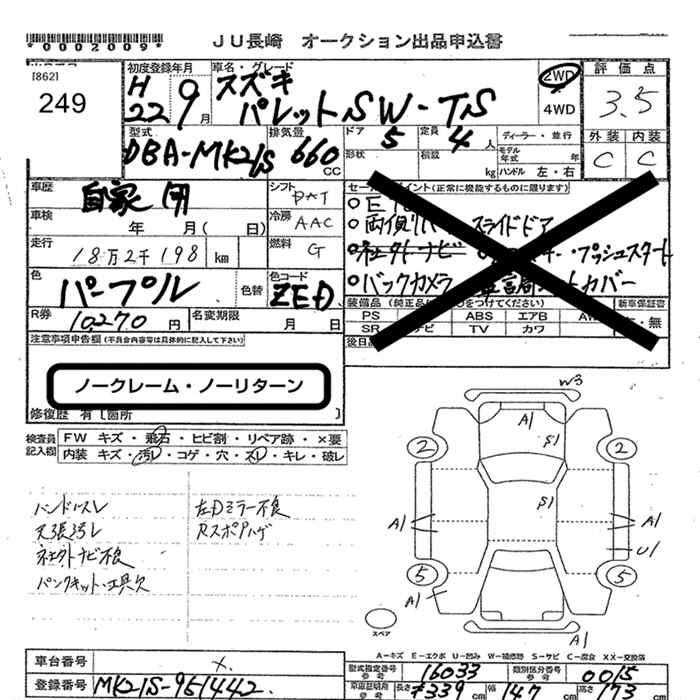 *0002009*
JU長崎 オークション出品申込書
[862]
249
初度登録年月 車名・グレード
H 22 9月
スズキ
パレットSW-TS
2WD
4WD
評価点
3.5
型式 排気量 ドア 定員
DBA-MK21S 660 CC 5 4人
形状 積載 kg
ディーラー・並行
モデル年式 年
ハンドル 左・右
外装 内装
C C
車歴 自家用
シフト
車検 年 月( 日)
冷房 AAC
走行 18万2千198 km
燃料 G
色 パープル 色替
色コード ZED
R券 10,270円 名変期限 月 日
セールスポイント(正常に機能するものに限ります)
スライドドア
社外ナビ ・プッシュスタート
バックカメラ カバー
装備品(純正品に○をつけてください)
新車保証書
PS ABS エアB AW 有・無
SR ナビ TV カワ
後日品
注意事項申告欄(不具合内容等は具体的に記入して下さい)
ノークレーム・ノーリターン
修復歴 有[箇所 ]
検査員記入欄
FW キズ・飛石・ヒビ割・リペア跡・×要
内装 キズ・汚レ・コゲ・穴・スレ・キレ・破レ
ハンドルスレ 左Dミラー不良
天張汚レ Rスポアハゲ
社外ナビ不良
パンクキット・工具欠
W3
A1
S1
2 2
S1
A1 A1
U1
5 5
A1
A1
スペア
A-キズ E-エクボ U-凹み W-補修跡 S-サビ C-腐食 XX-交換済
車台番号
登録番号 MK21S-951442
型式指定番号 16033 類別区分番号 0015
車庫証明用参考 長さ 339cm 幅 147cm 高さ